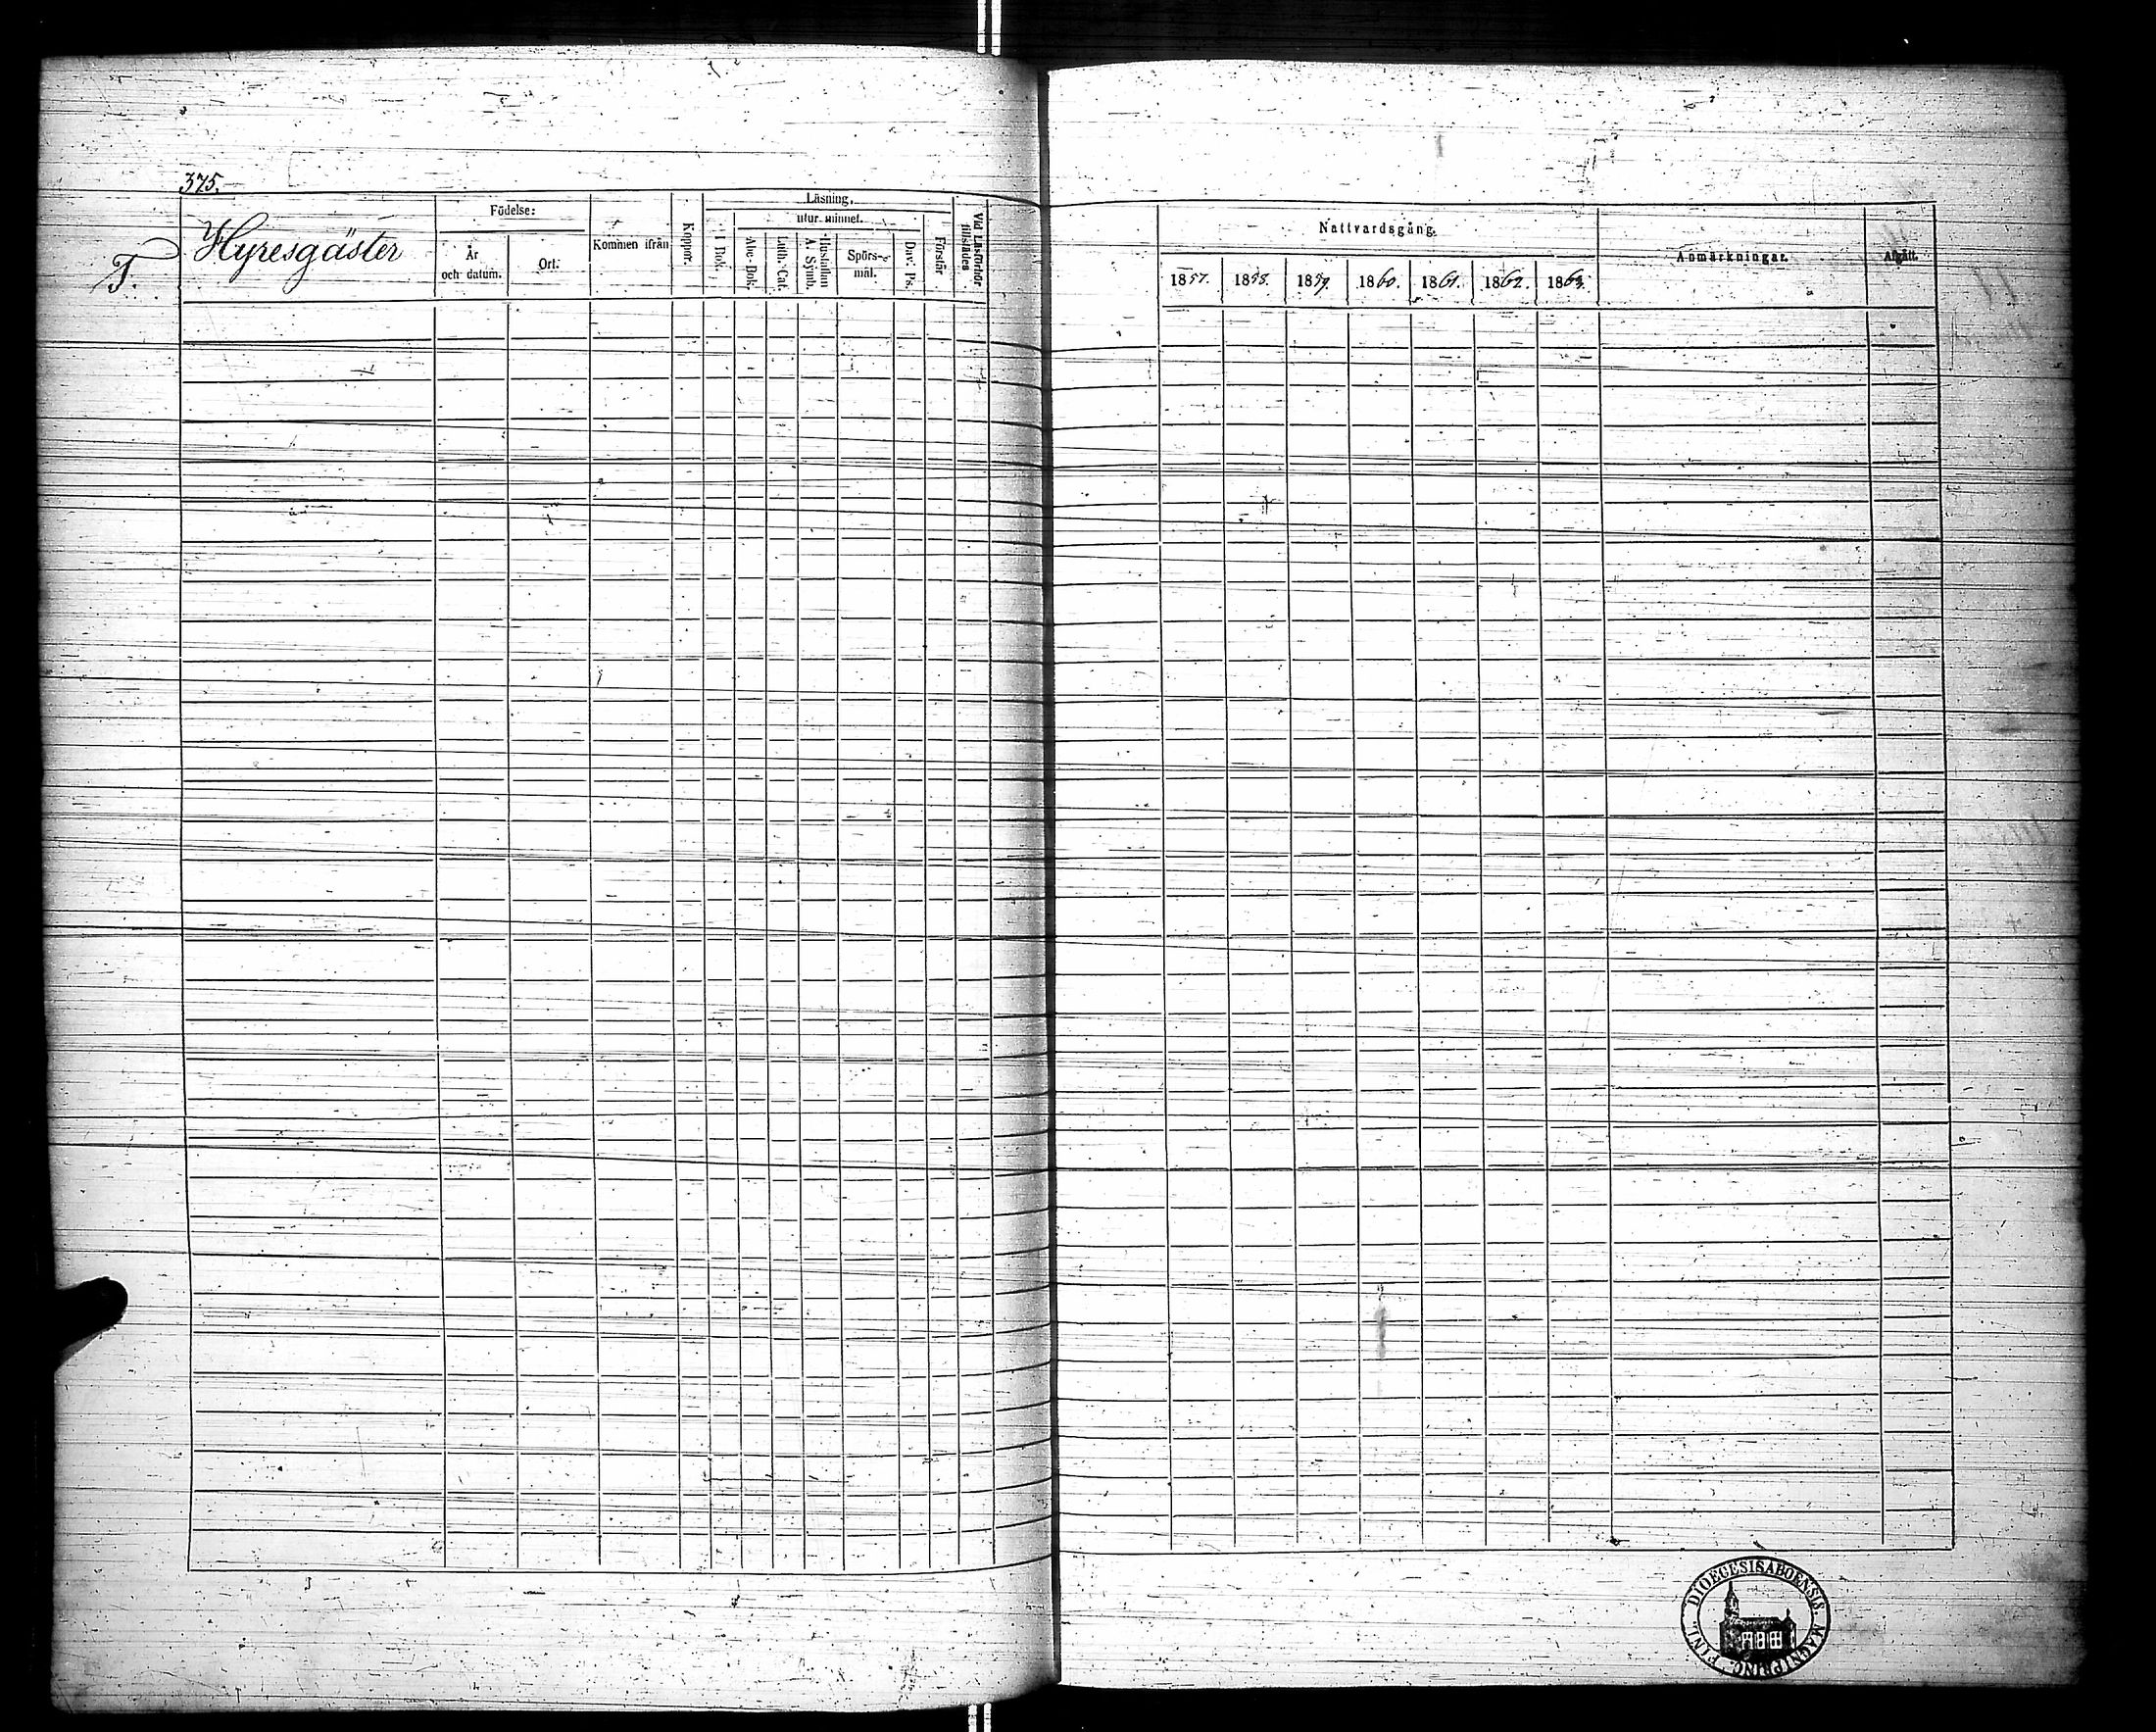 375.
T.
Hyresgäster
Födelse:
År och datum.
Ort:
Kommen ifrån
Koppor.
Läsning,
I Bok.
utur minnet.
Abc-Bok
Luth: Cat.
Hustaflan A. Symb.
Spörs- mål.
Dav: Ps.
Förstår
Vid Läsförhör tillstädes
Nattvardsgång.
1857.
1858.
1859.
1860.
1861.
1862.
1863.
Anmärkningar.
Afgått.
DIOECESIS ABOENSIS. MAGNI PRINC. FINL.